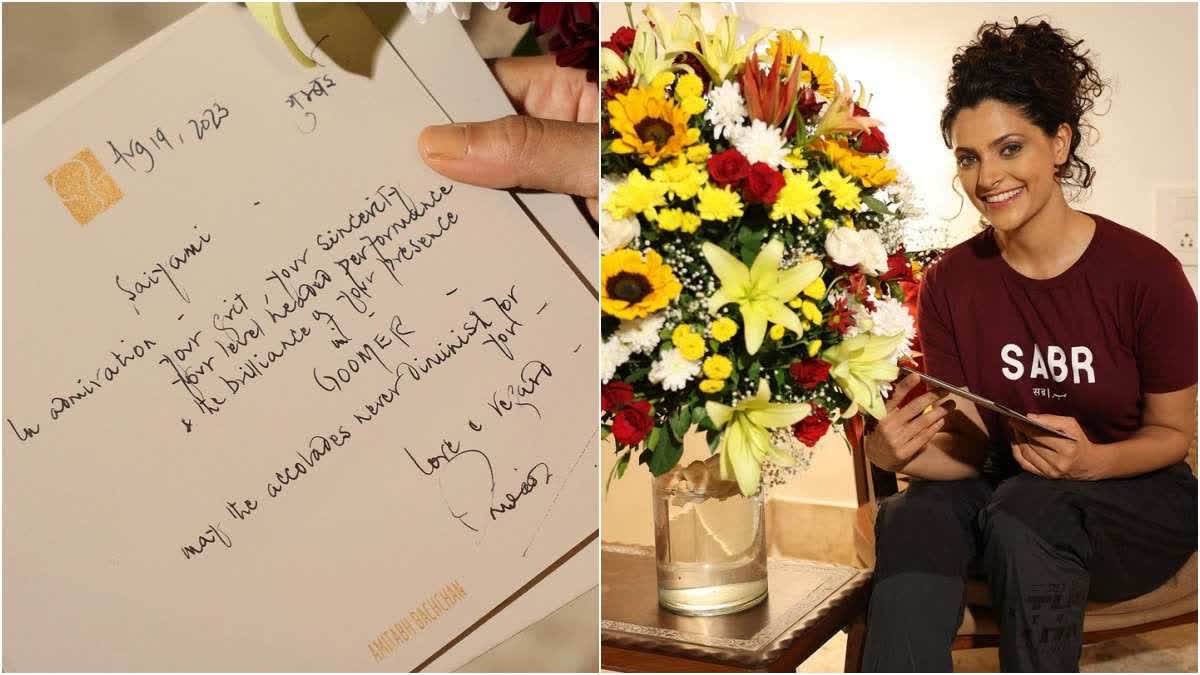 Aug 19, 2023
Saiyami
In admiration -
Your grit, your sincerity
Your level headed performance
& the brilliance of your presence
in -
GOOMER
may the accolades never diminish for
you! -
love & regard -
AMITABH BACHCHAN
SABR
सब्र